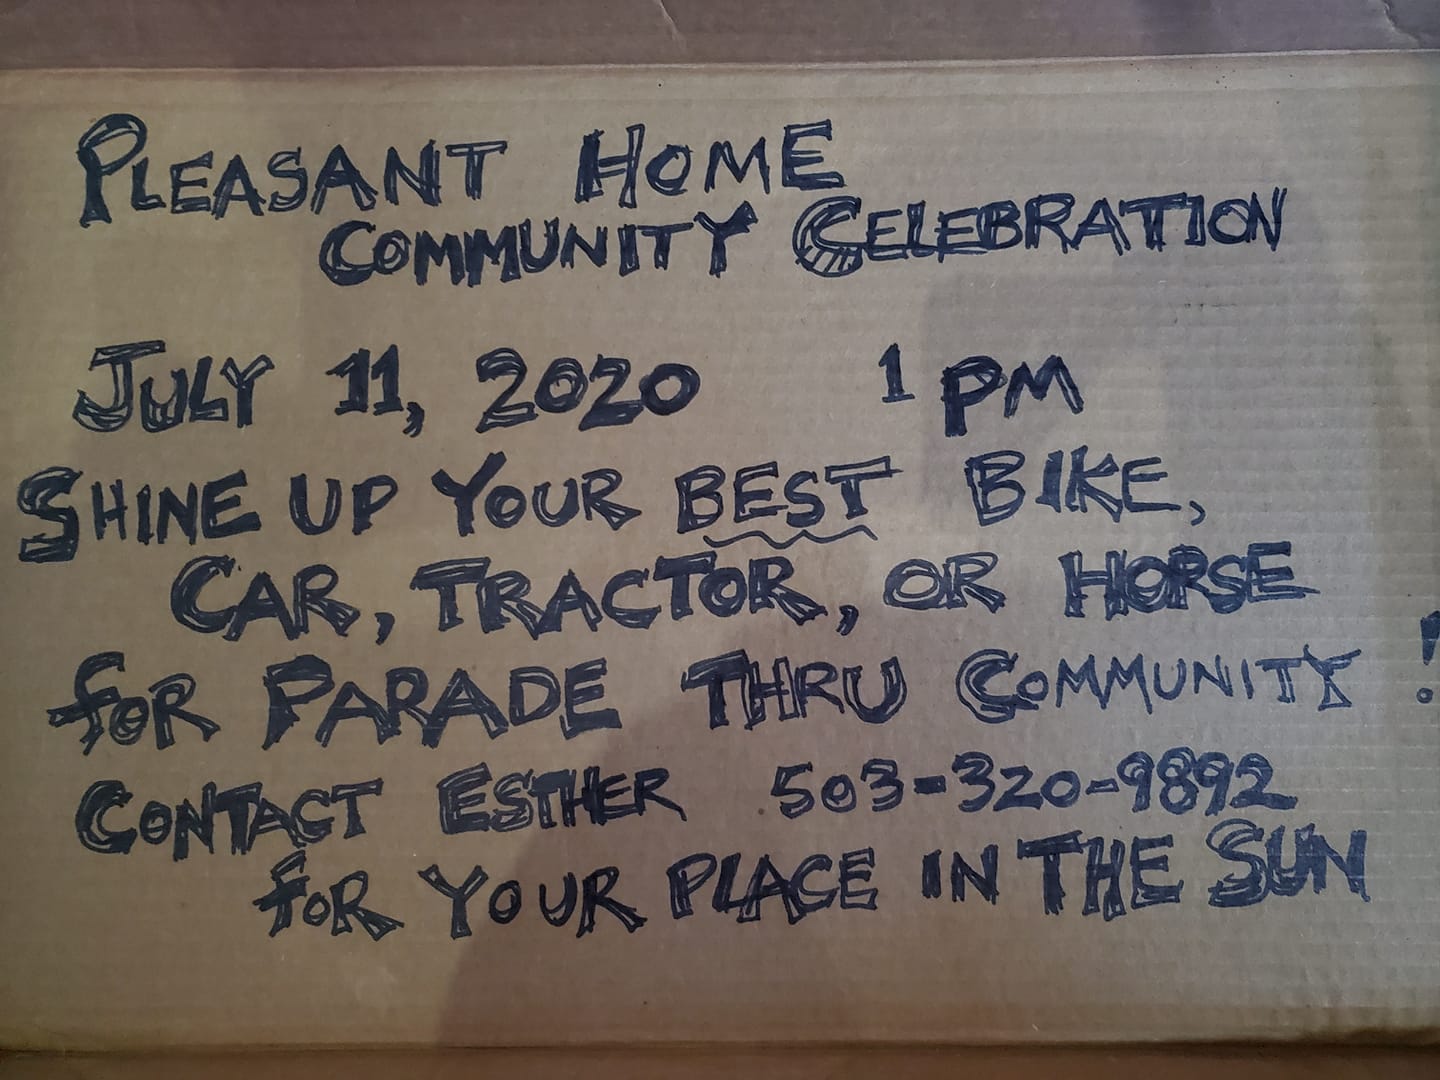 PLEASANT HOME
COMMUNITY CELEBRATION
JULY 11, 2020 1 PM
SHINE UP YOUR BEST BIKE,
CAR, TRACTOR, OR HORSE
for PARADE THRU COMMUNITY!
CONTACT ESTHER 503-320-9892
for YOUR PLACE IN THE SUN